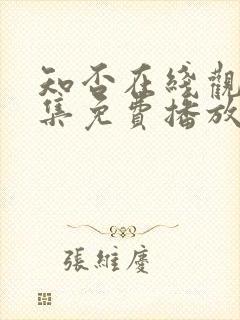 知否在綫觀
集免費播放
張維慶